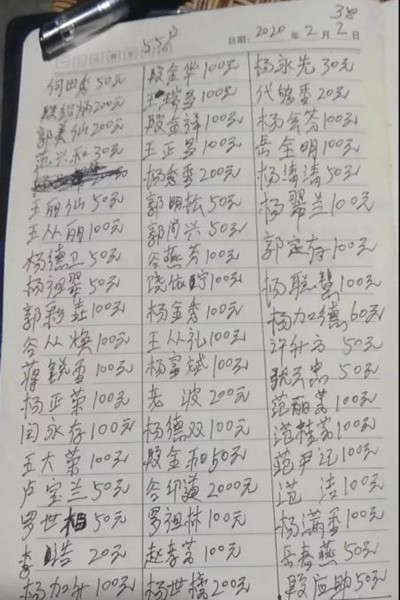 38
55户
日期: 2020 年 2 月 2 日
何田香 50元
殷绍炳 200元
郭美仙 200元
范兴和 30元
王丽仙 50元
王从丽 100元
杨德卫 50元
杨祖翠 50元
郭彩 100元
谷从焕 100元
蒋锐雪 100元
杨正荣 100元
闫永存 100元
王大荣 100元
卢宝兰 50元
罗世柏 50元
李浩 20元
杨加升 100元
殷金华 100元
王瑞昌 100元
殷金泽 100元
王正昌 100元
杨秀香 200元
郭明松 50元
郭尚兴 50元
谷燕芬 100元
饶 100元
杨金香 100元
王从礼 100元
杨富斌 100元
老波 200元
杨德双 100元
殷金和 50元
谷绍道 2000元
罗祖林 100元
赵孝富 100元
杨世 200元
杨永先 30元
代 香 20元
杨会芬 100元
岳全明 100元
杨涛涛 50元
杨翠兰 100元
郭定存 100元
杨联慧 100元
杨加德 60元
许升方 50元
张 忠 50元
范丽 100元
范桂芳 100元
范尹记 100元
范洁 100元
杨满香 100元
岳春燕 50元
殷应助 50元